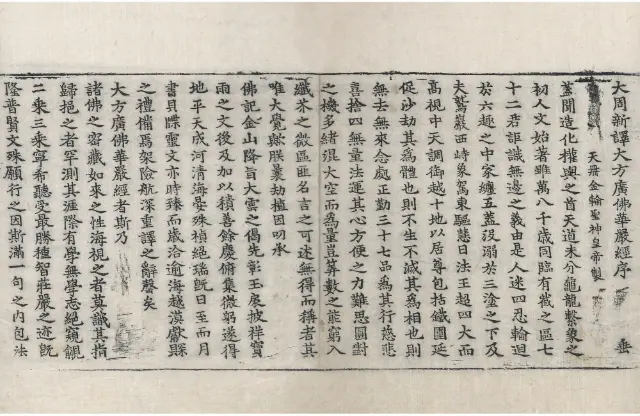 大周新譯大方廣佛華嚴經序 垂
天冊金輪聖神皇帝製
蓋聞造化權輿之首天道未分龜龍繫象之
初人文始著雖萬八千歲同臨有截之區七
十二君詎識無邊之義由是人迷四忍輪迴
於六趣之中家纏五蓋沒溺於三塗之下及
夫鷲巖西峙象駕東驅慧日法王超四大而
高視中天調御越十地以居尊包括鐵圍延
促沙劫其為體也則不生不滅其為相也則
無去無來念處正勤三十七品為其行慈悲
喜捨四無量法運其心方便之力難思圓對
之機多緒混大空而為量豈算數之能窮入
纖芥之微區匪名言之可述無得而稱者其
唯大覺歟朕曩劫植因叨承
佛記金山降旨大雲之偈先彰玉扆披祥寶
雨之文後及加以積善餘慶俯集微躬遂得
地平天成河清海晏殊禎絕瑞既日至而月
書貝牒靈文亦時臻而歲洽逾海越漠獻賝
之禮備焉架險航深重譯之辭罄矣
大方廣佛華嚴經者斯乃
諸佛之密藏如來之性海視之者莫識其指
歸挹之者罕測其涯際有學無學志絕窺覦
二乘三乘寧希聽受最勝種智莊嚴之迹既
隆普賢文殊願行之因斯滿一句之內包法